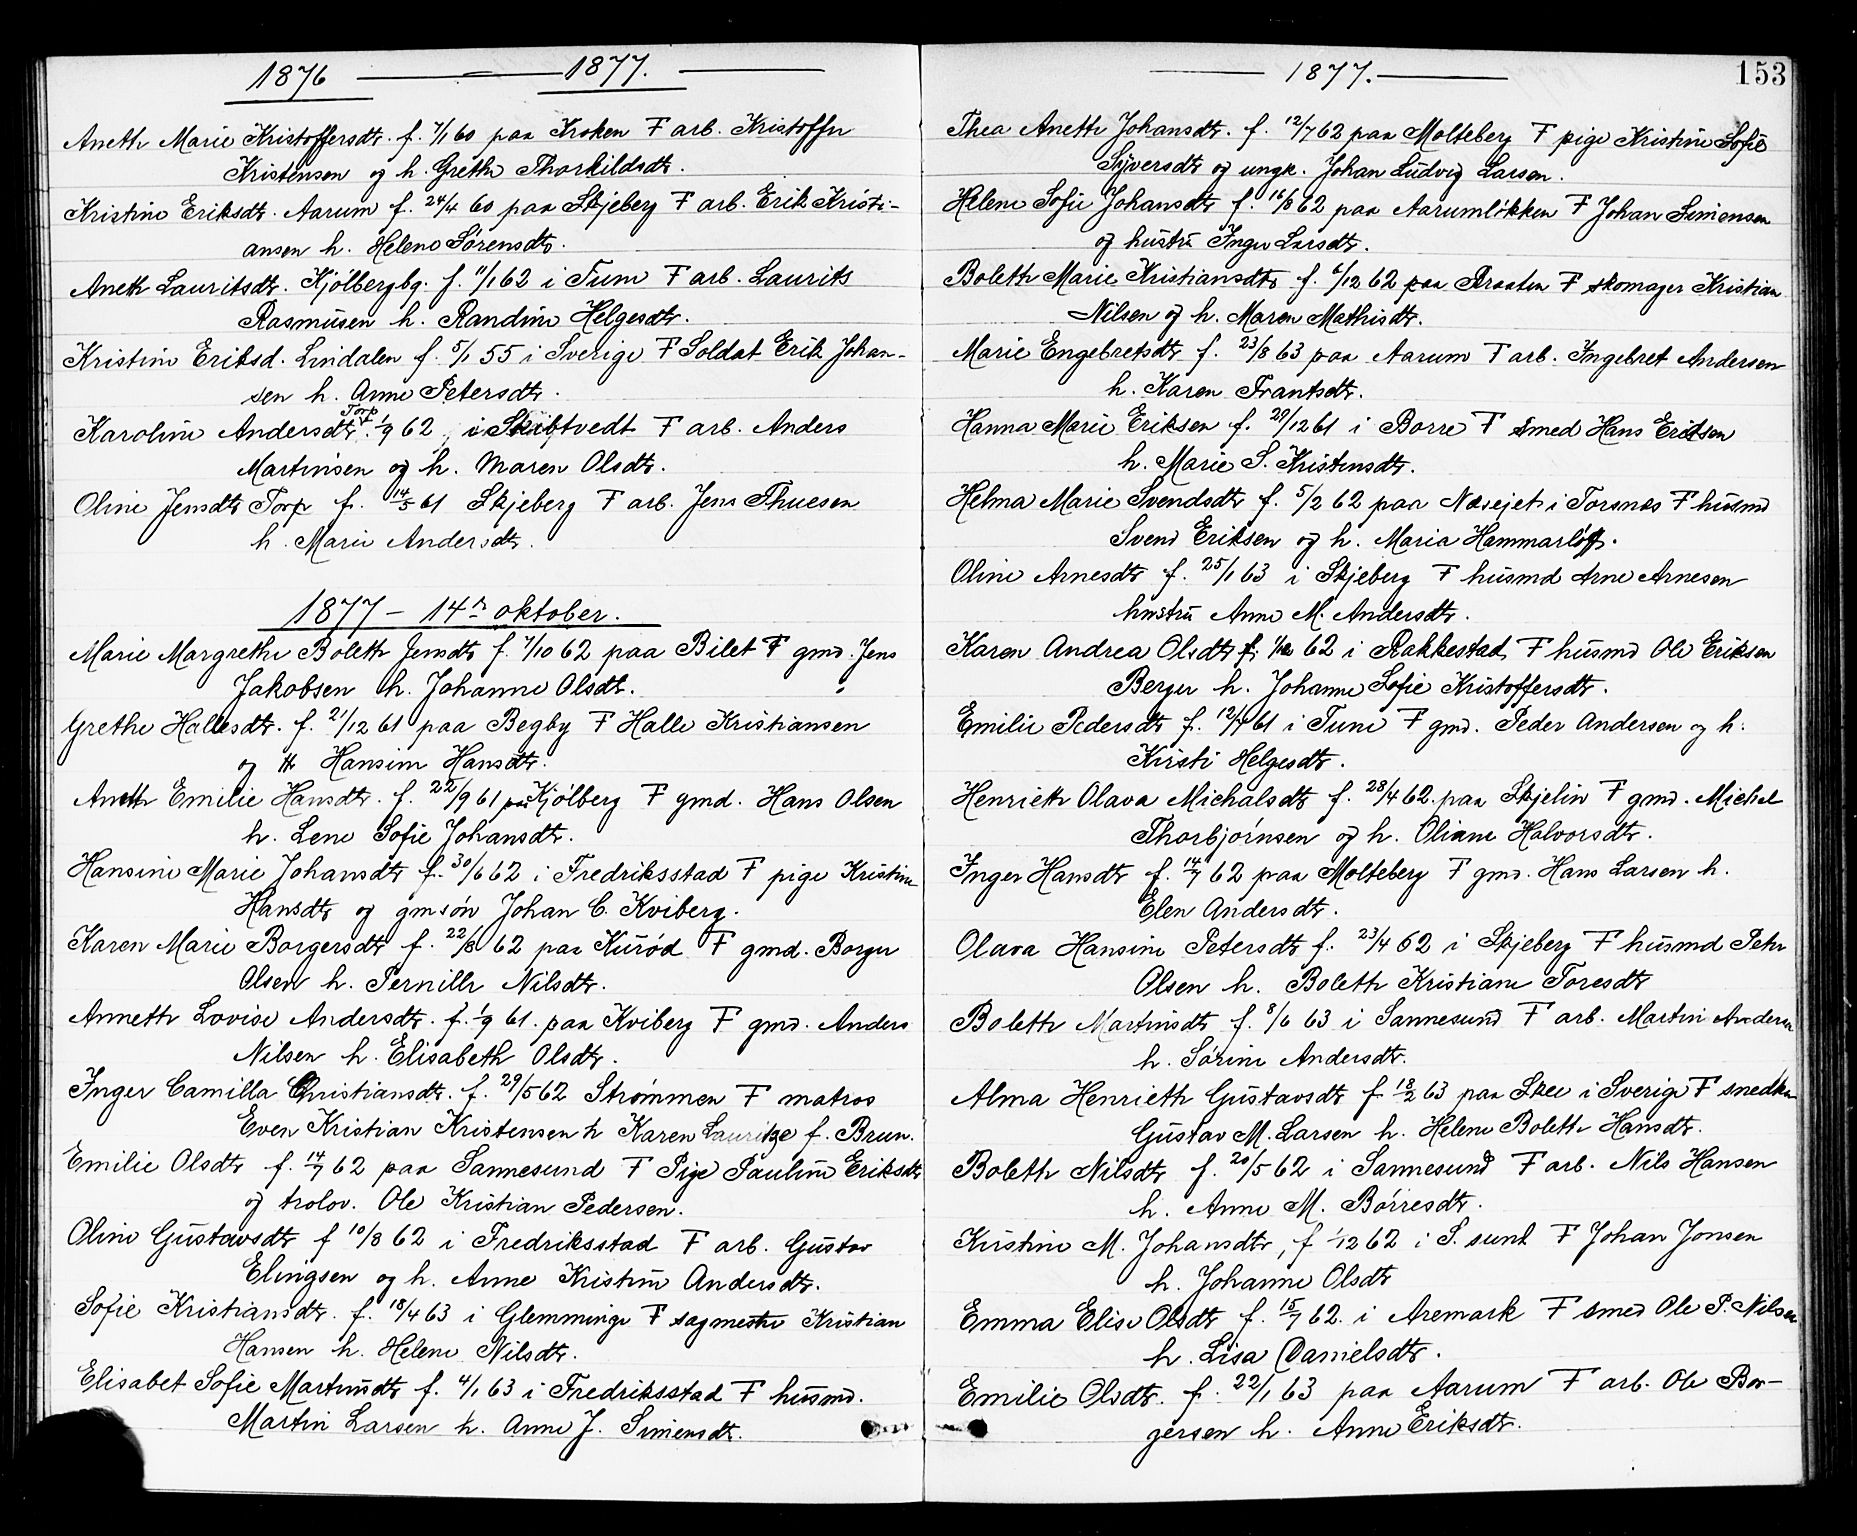 1876 — 1877.
Aneth Marie Kristoffersdt. f. 7/1 60 paa Kroken F arb. Kristoffer
Kristensen og h. Grethe Thorkildsdt.
Kristine Eriksdt. Aarum f. 24/4 60 paa Skjeberg F arb. Erik Kristi-
ansen h. Helene Sørensdtr.
Aneth Lauritsdt. Kjølbergbg. f. 11/1 62 i Tune F arb. Laurits
Rasmusen h. Randine Helgesdtr.
Kristine Eriksd. Lindalen f. 5/1 55 i Sverige F Soldat Erik Johan-
sen h. Anne Petersdtr.
Torp
Karoline Andersdtr f. 1/9 62 i Skibtvedt F arb. Anders
Martinsen og h. Maren Olsdtr.
Oline Jensdtr Torp f. 14/5 61 Skjeberg F arb. Jens Thuesen
h. Marie Andersdtr.
1877 — 14de oktober.
Marie Margrethe Boleth Jensdtr f. 7/10 62 paa Bilet F gmd. Jens
Jakobsen h. Johanne Olsdt.
Grethe Hallesdt. f. 21/12 61 paa Begby F Halle Kristiansen
og H Hansine Hansdtr.
Aneth Emilie Hansdtr. f. 22/9 61 paa Kjølberg F gmd. Hans Olsen
h. Lene Sofie Johansdtr.
Hansine Marie Johansdtr f. 30/6 62 i Fredriksstad F pige Kristine
Hansdtr og gmsøn Johan C. Kviberg.
Karen Marie Borgersdtr f. 22/8 62 paa Kurød F gmd. Borger
Olsen h. Pernille Nilsdtr.
Anneth Lovise Andersdtr. f. 1/9 61. paa Kviberg F gmd. Anders
Nilsen h. Elisabeth Olsdtr.
Inger Camilla Christiansdt. f. 29/5 62 Strømmen F matros
Even Kristian Kristensen h Karen Lauritze f. Brun.
Emilie Olsdtr f. 14/7 62 paa Sannesund F Pige Pauline Eriksdtr
og trolov. Ole Kristian Pedersen.
Oline Gustavsdtr f 10/8 62 i Fredriksstad F arb. Gustav
Elingsen og h. Anne Kristine Andersdtr.
Sofie Kristiansdtr. f. 18/4 63 i Glemminge F sagmester Kristian
Hansen h. Helene Nilsdtr.
Elisabet Sofie Martinsdtr f. 4/1 63 i Fredriksstad F husmd.
Martin Larsen h. Anne J. Simensdt.
— 1877. —
153
Thea Aneth Johansdt. f. 12/7 62 paa Molteberg F pige Kristine Sofie
Syversdtr og ungk. Johan Ludvig Larsen.
Helene Sofie Johansdtr f. 16/8 62 paa Aarumløkken F Johan Simensen
og hustru Inger Larsdtr.
Boleth Marie Kristiansdtr f. 6/12 62 paa Braaten F skomager Kristian
Nilsen og h. Maren Mathisdtr.
Marie Engebretsdtr f. 23/8 63 paa Aarum F arb. Ingebret Andersen
h. Karen Frantsdtr.
Hanna Marie Eriksen f. 29/12 61 i Borre F Smed Hans Eriksen
h. Marie S. Kristensdtr.
Helma Marie Svendsdtr f. 5/2 62 paa Næsejet i Torsnæs F husmd
Svend Eriksen og h. Maria Hammarløf.
Oline Arnesdtr f. 25/1 63 i Skjeberg F husmd Arne Arnesen
hustru Anne M. Andersdtr.
Karen Andrea Olsdtr f. 1/12 62 i Rakkestad F husmd Ole Eriksen
Berger h. Johanne Sofie Kristoffersdtr.
Emilie Pedersdtr f. 12/7 61 i Tune F gmd. Peder Andersen og h.
Kirsti Helgesdtr.
Henrieth Olava Michalsdtr f. 28/4 62. paa Skjelin F gmd. Michel
Thorbjørnsen og h. Oliane Halvorsdtr.
Inger Hansdtr f. 14/7 62 paa Molteberg F gmd. Hans Larsen h.
Elen Andersdtr.
Olava Hansine Petersdtr f. 23/4 62 i Skjeberg F husmd Peter
Olsen h. Boleth Kristiane Toresdtr
Boleth Martinsdtr f. 8/6 63 i Sannesund F arb. Martin Andersen
h. Sørine Andersdtr.
Alma Henrieth Gustavsdtr f 18/2 63 paa Skee i Sverige F snedker
Gustav M. Larsen h. Helene Boleth Hansdtr.
Boleth Nilsdtr f. 20/5 62 i Sannesund F arb. Nils Hansen
h. Anne M. Børresdtr.
Kristine M. Johansdtr, f 1/12 62 i S. sund F Johan Jonsen
h. Johanne Olsdtr
Emma Elise Olsdtr f. 15/7 62. i Aremark F smed Ole P. Nilsen
h. Lisa Danielsdtr.
Emilie Olsdtr. f. 22/1 63 paa Aarum F arb. Ole Bor-
gersen h. Anne Eriksdtr.